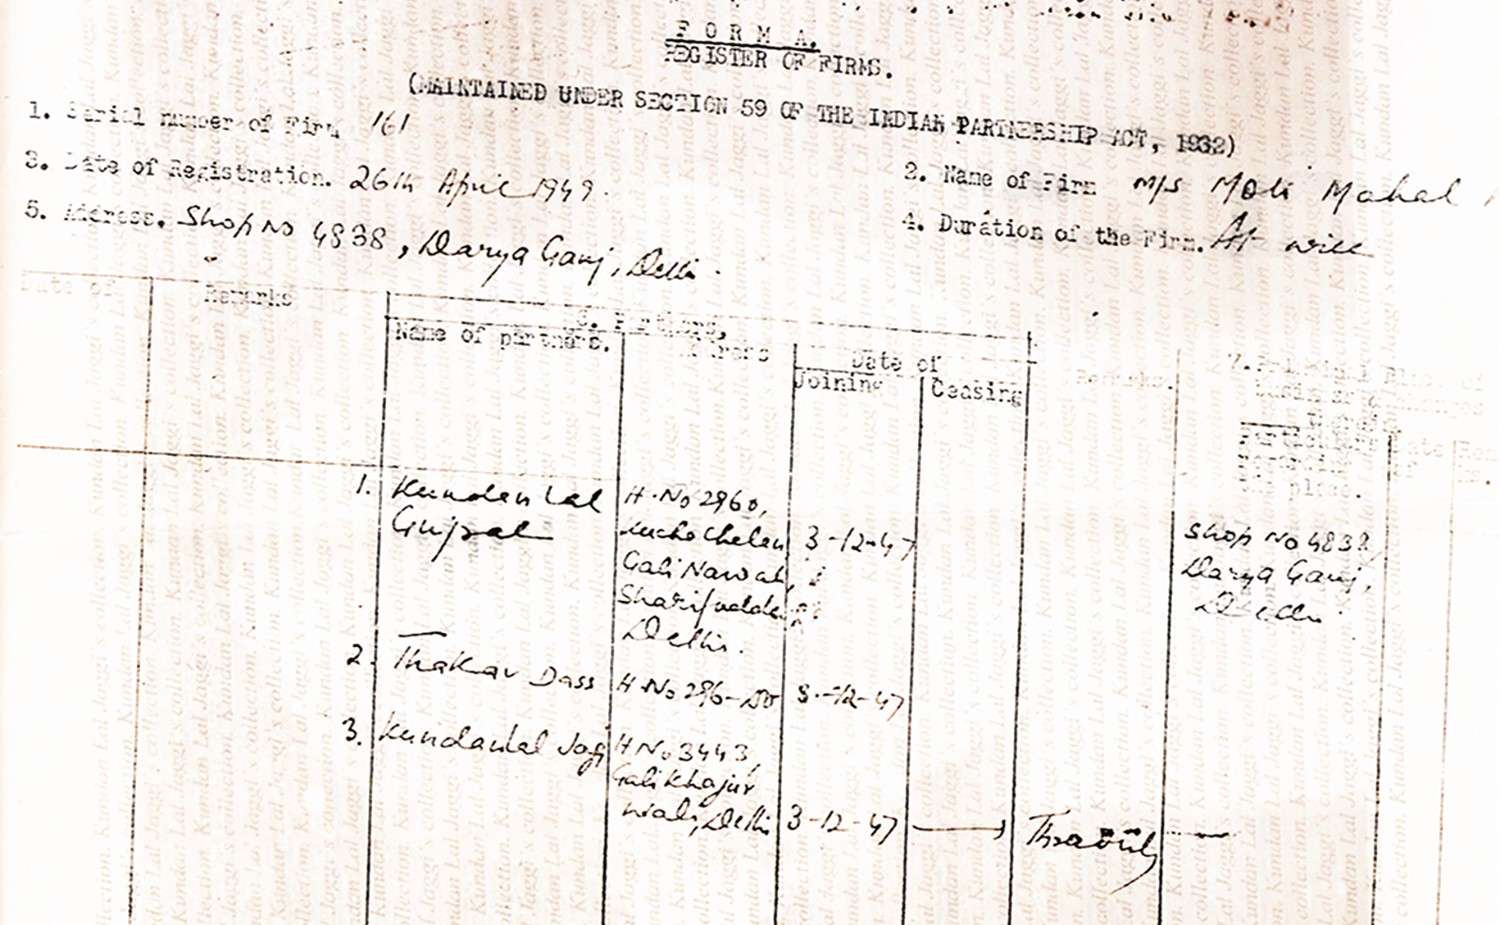 F O R M A.
REGISTER OF FIRMS.
(MAINTAINED UNDER SECTION 59 OF THE INDIAN PARTNERSHIP ACT, 1932)
1. Serial number of Firm 161
2. Name of Firm M/s Moti Mahal
3. Date of Registration. 26th April 1949.
4. Duration of the Firm. At will
5. Address. Shop No 4838, Darya Ganj, Delhi.
Date of Remarks
6. Partners,
Name of partners. Address Date of
Joining Ceasing Remarks.
7. Principal Place of
business
Particulars Date
of
the place.
1. Kundan Lal H. No 2960,
Gujral Kucha Chelan 3-12-47 Shop No 4838,
Gali Nawab, Darya Ganj,
Delhi
Delhi.
2. Thakar Dass H. No 296- 3-12-47
3. Kundanlal Jagi H No 3443,
Gali Khajur
Wali, Delhi 3-12-47